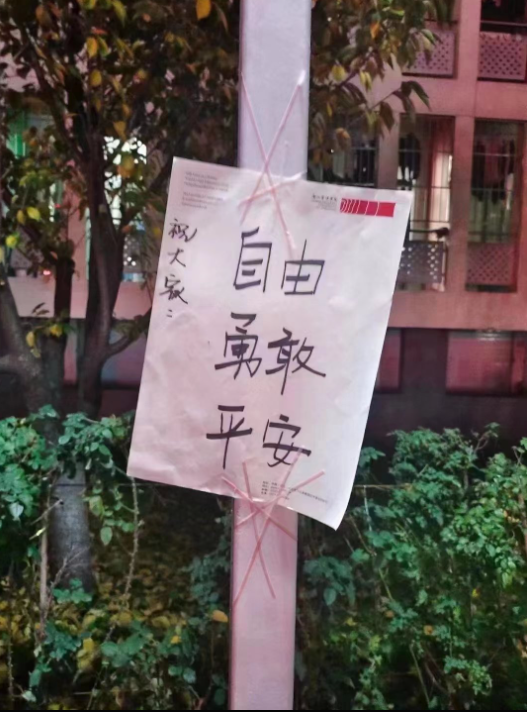 祝大家：
自由
勇敢
平安